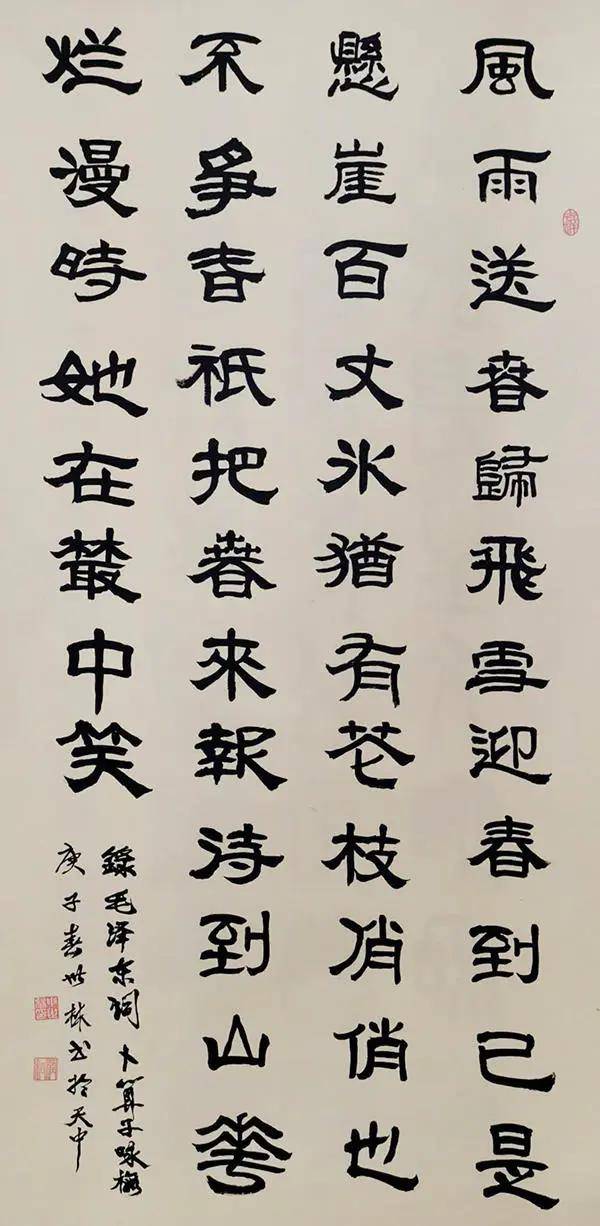 風雨送春歸飛雪迎春到已是
懸崖百丈冰猶有花枝俏俏也
不爭春祇把春來報待到山花
烂漫時她在叢中笑
錄毛泽东词 卜算子咏梅
庚子春世林书於天中